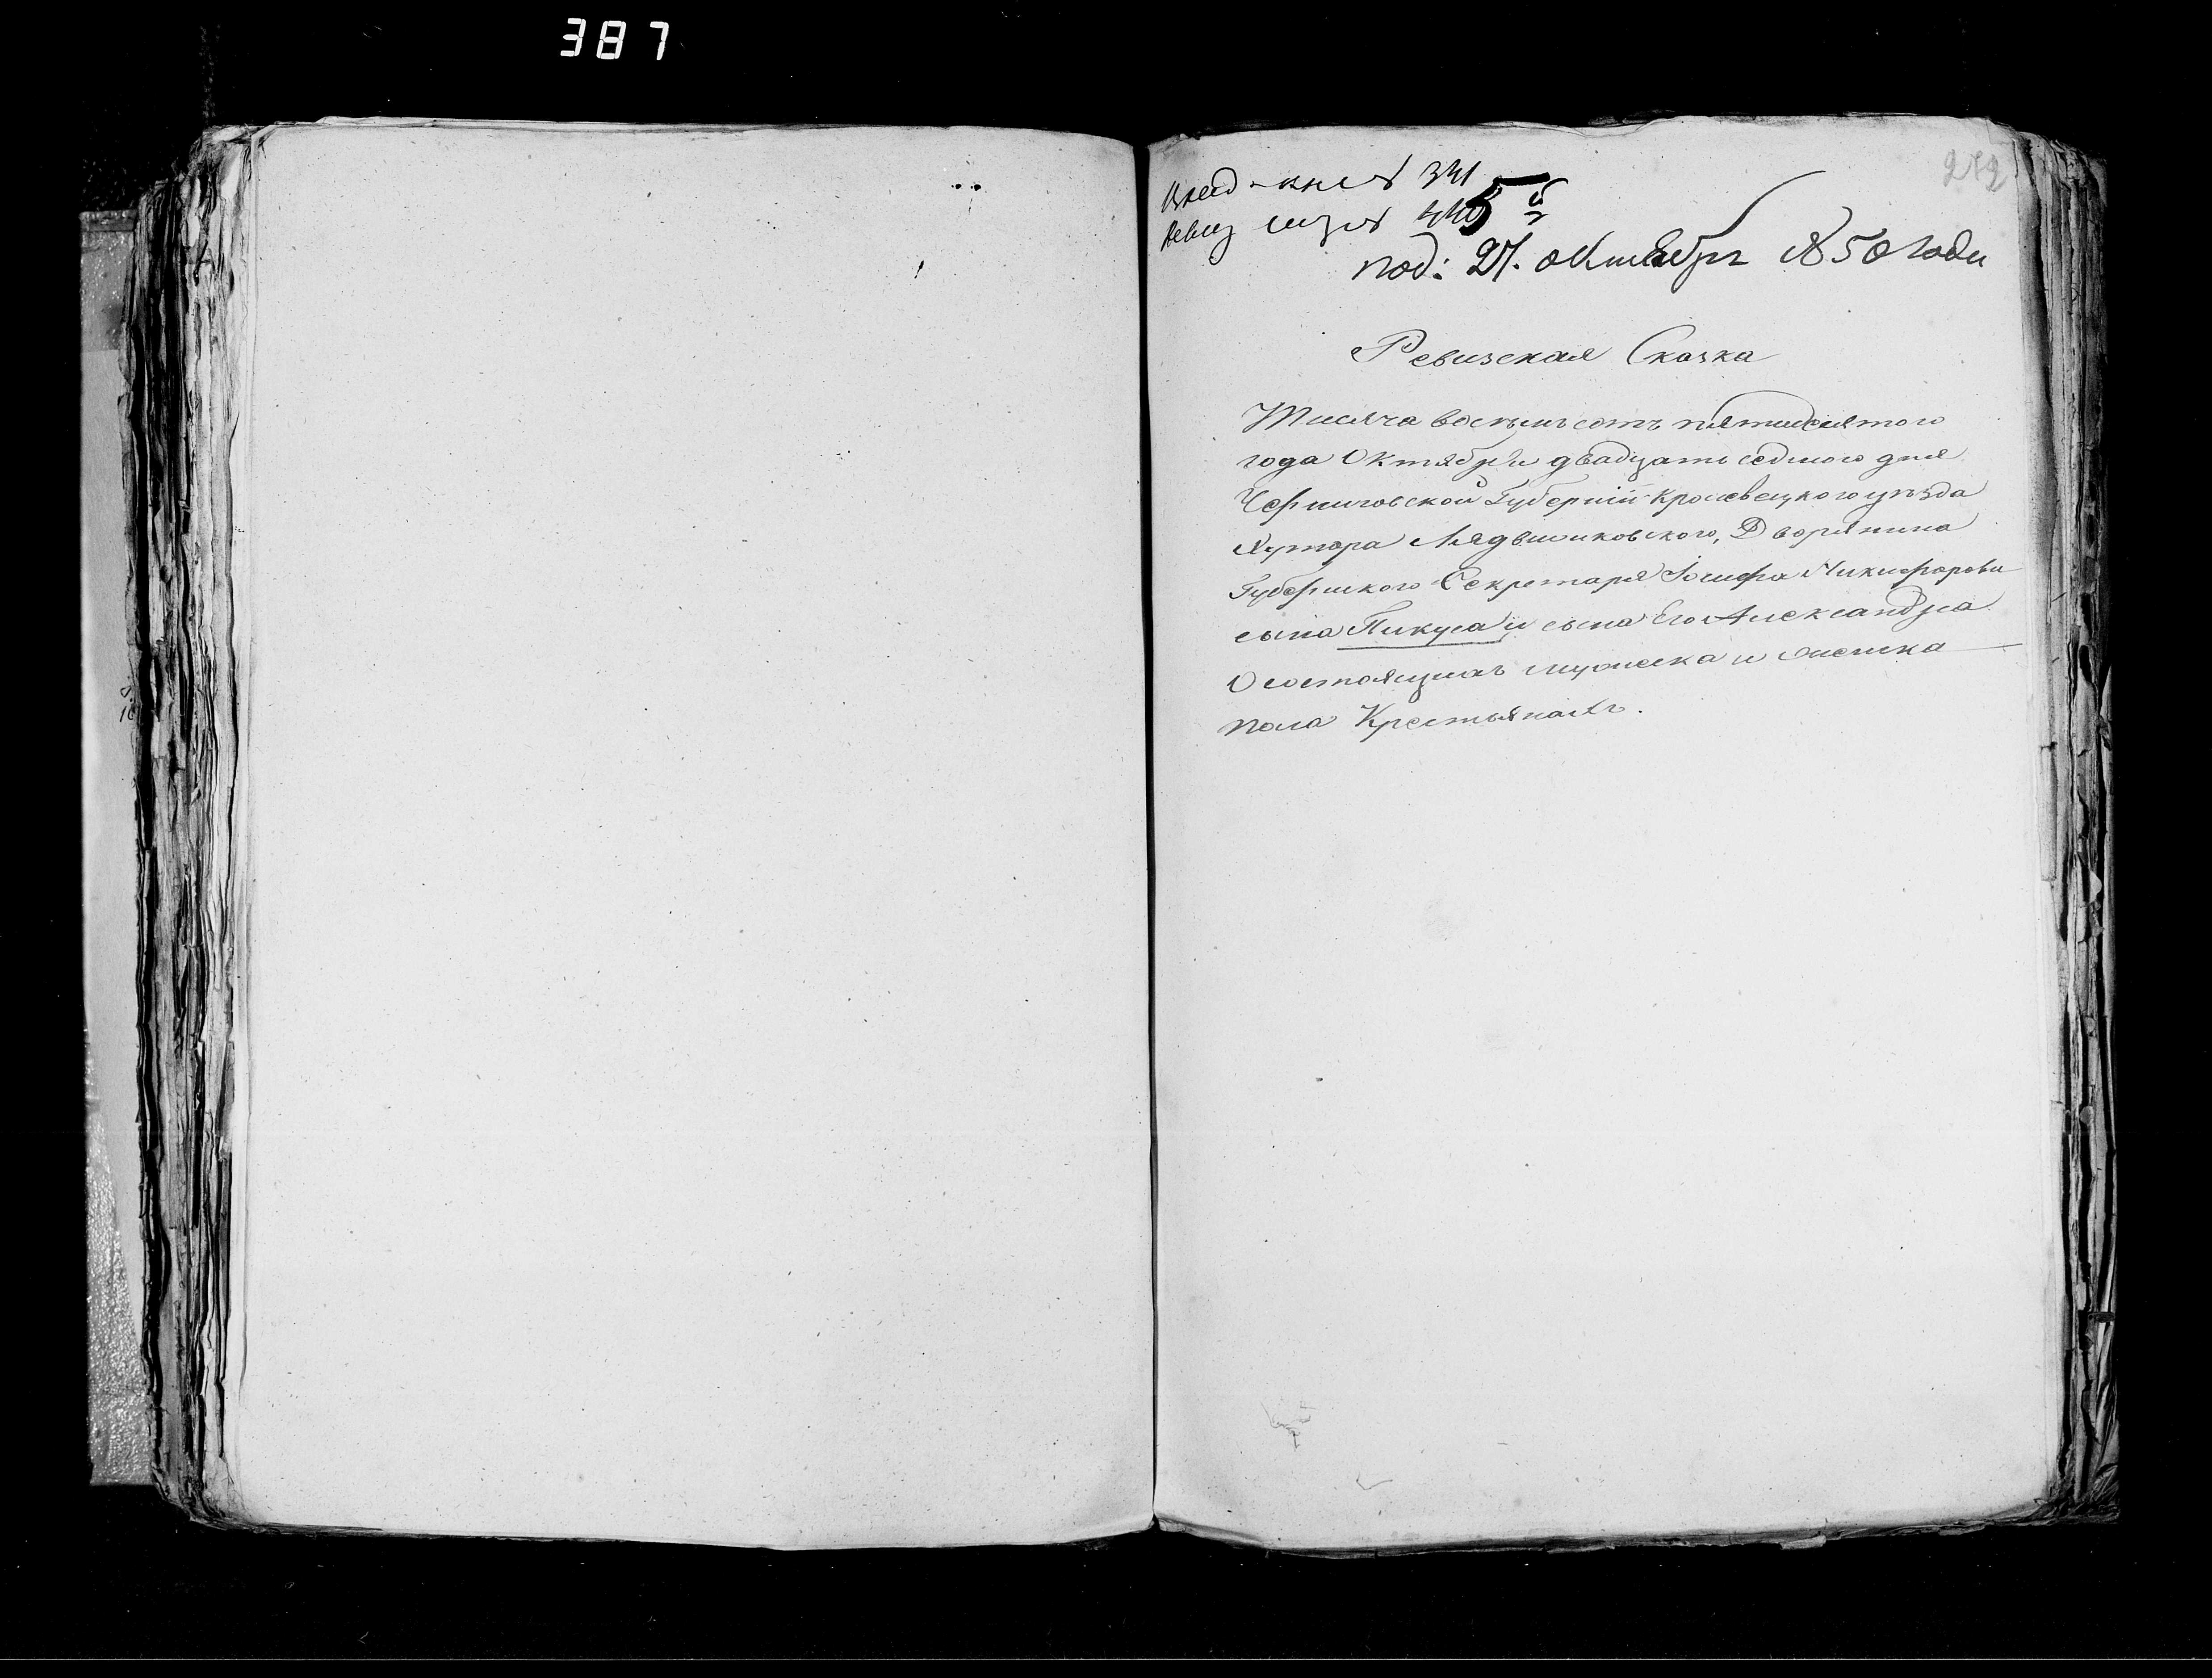 387
272
341
440 5
под: 27. октября 1850 года
Ревизская Сказка
Тысяча восемьсотъ пятидесятого
года Октября двадцать седмого дня
Черниговской Губерніи Кролевецкого уѣзда
Хутора Дворянина
Губернского Секретаря Іосифа Никифорова
сына Пикуса и сына Его Александра
О состоящихъ мужеска и женска
пола Крестьянахъ.